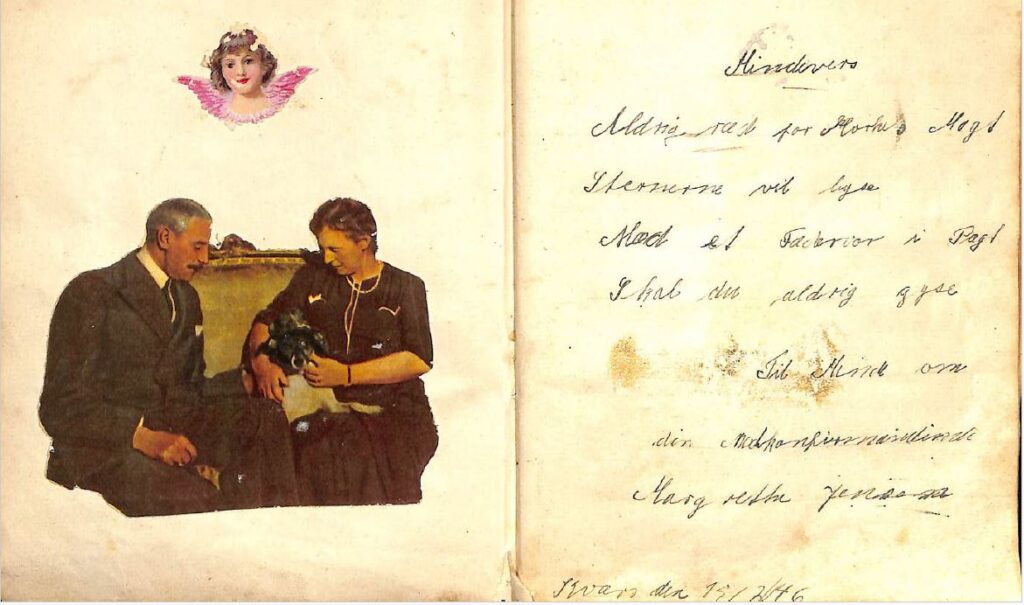 Mindevers
Aldrig ræd for Mørkets Magt
Sternerne vil lyse
Med et Fadervor i Pagt
Skal du aldrig gyse
Til Minde om
din Medkonfirmandinde
Margrethe Jensen
den 19/2 46